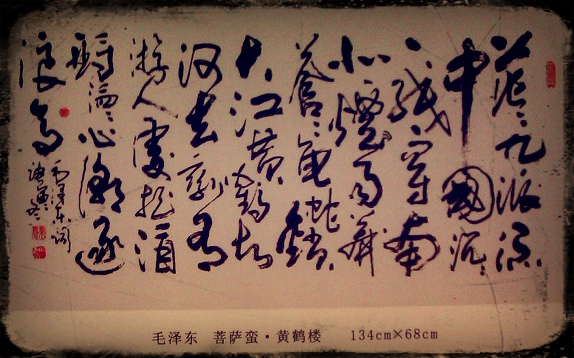 茫々九派流
中國沉々
一线穿南
北烟雨莽
苍々龟蛇锁
大江黄鹤知
何去剩有
游人處把酒
酹滔々心潮逐
浪高
毛泽东词
毛泽东 菩萨蛮·黄鹤楼 134cm×68cm